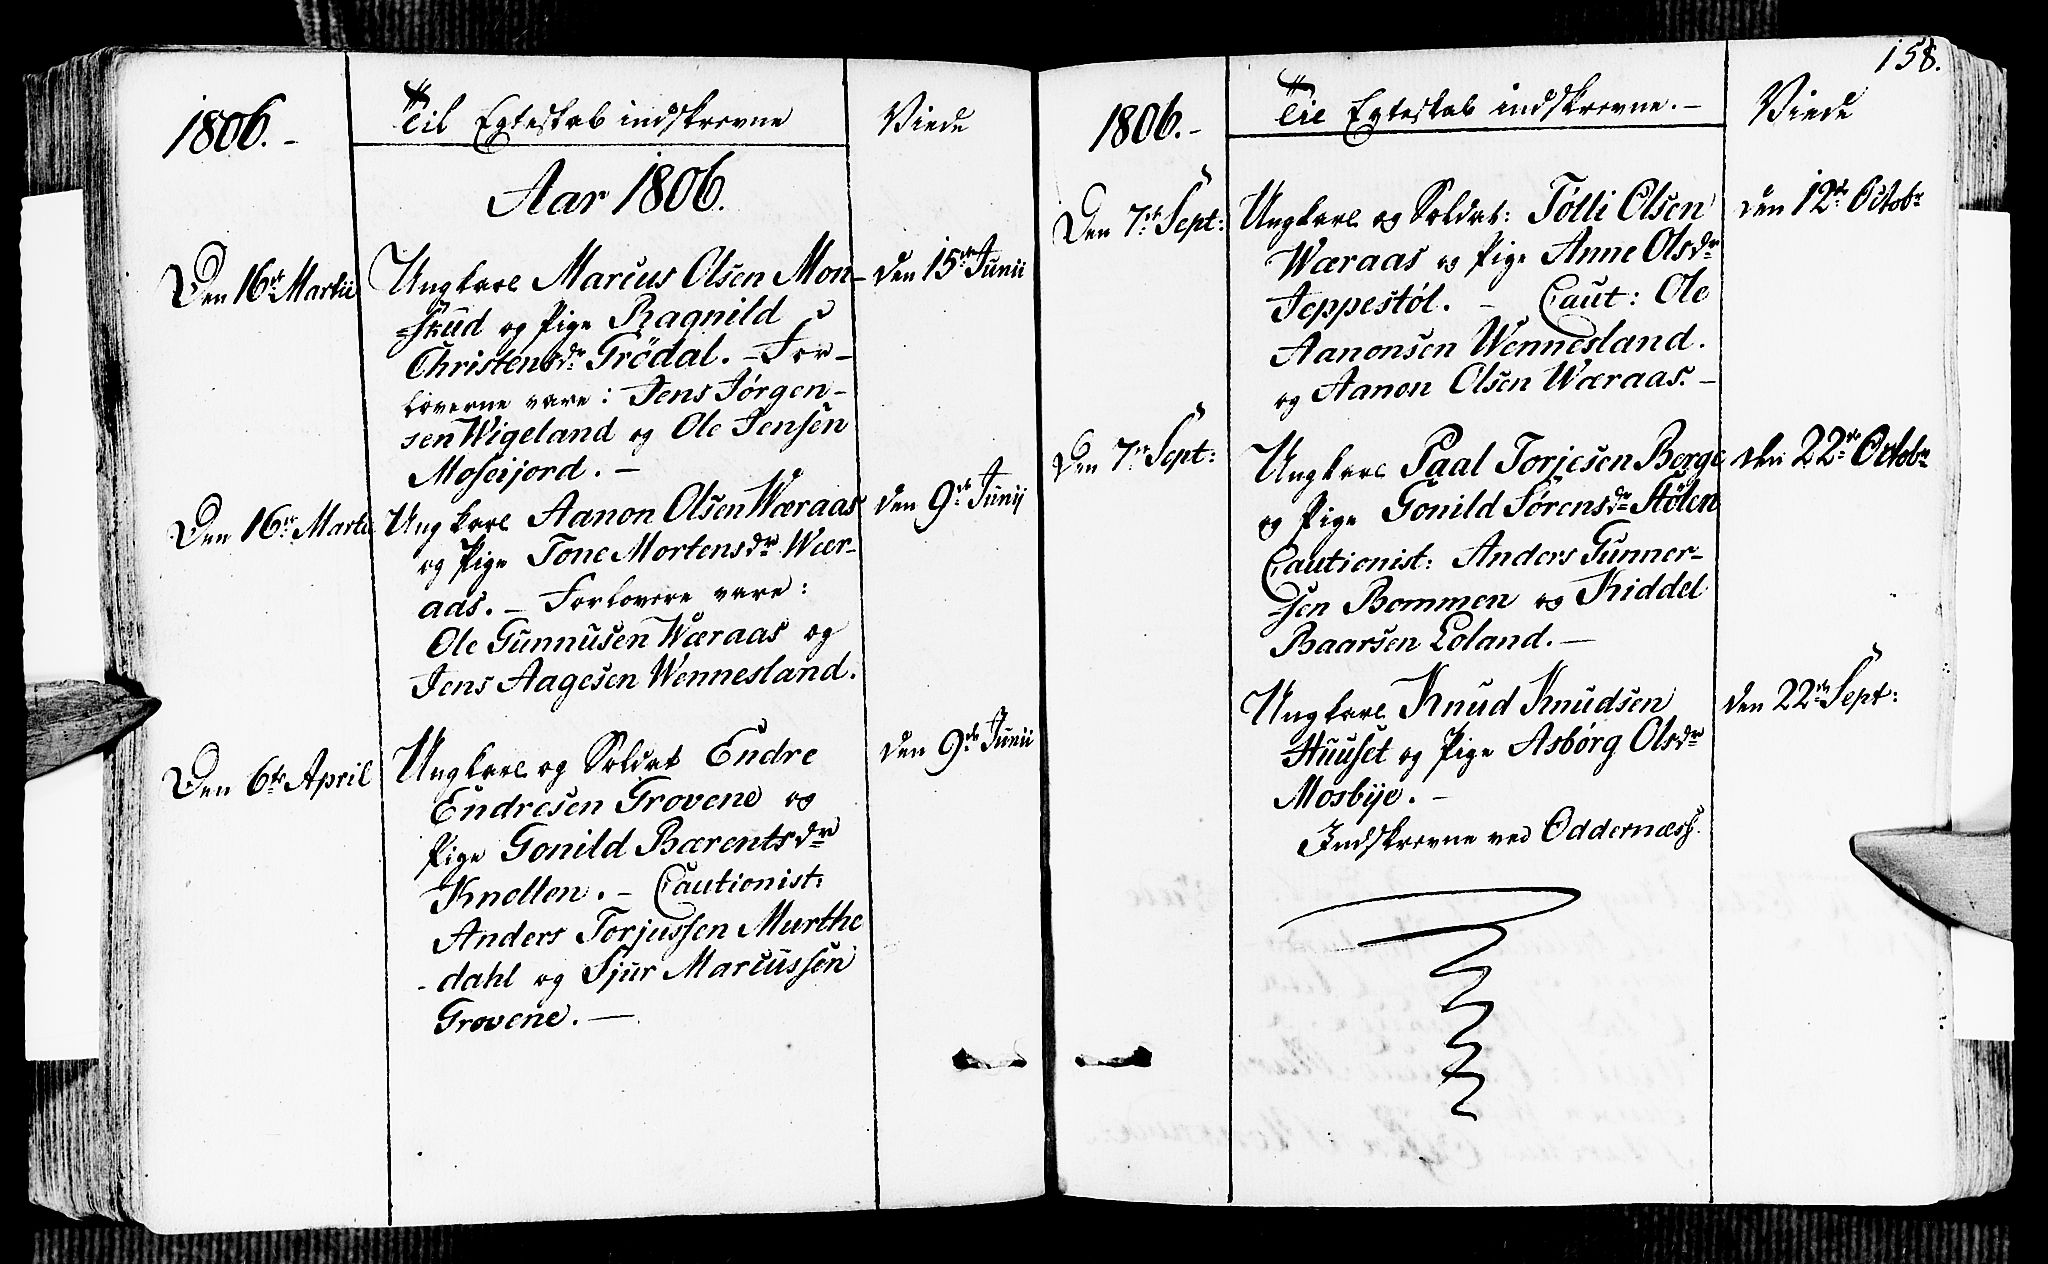 1806. -
Til Egteskab indskrevne
Viede
Aar 1806.
Den 16de Martii
Ungkarl Marcus Olsen Mon-
=skud og Pige Ragnild
Christensdr Trödal. - For-
loverne vare: Jens Jørgen-
sen Wigeland og Ole Jensen
Moseijord. -
den 15de Junii
Den 16de Martii
Ungkarl Aanon Olsen Wæraas
og Pige Tone Mortensdr Wær-
aas. - Forlovere vare:
Ole Gunnusen Wæraas og
Jens Aagesen Wennesland.
den 9de Junij
Den 6te April
Ungkarl og Soldat Endre
Endresen Grovene og
Pige Gonild Bærentsdr
Knollen. - Cautionist:
Anders Torjussen Murthe
- dahl og Sjur Marcussen
Grovene. -
den 9de Junii
158.
1806. -
Til Egteskab indskrevne. -
Viede
Den 7de Sept:
Ungkarl og Soldat: Tølli Olsen
Wæraas og Pige Anne Olsdr
Jeppestøl. - Caut: Ole
Aanonsen Wennesland.
og Aanon Olsen Wæraas. -
den 12te Octobr
Den 7de Sept:
Ungkarl Paal Torjesen Berge
og Pige Gonild Sørensdr Stølen
Cautionist: Anders Gunner-
=sen Bommen og Kiddel
Baarsen Loland. -
den 22de Octobr
Ungkarl Knud Knudsen
Huuset og Pige Asbørg Olsdr
Mosbÿe. -
Indskrevne ved Oddernæss.
den 22de Sept: